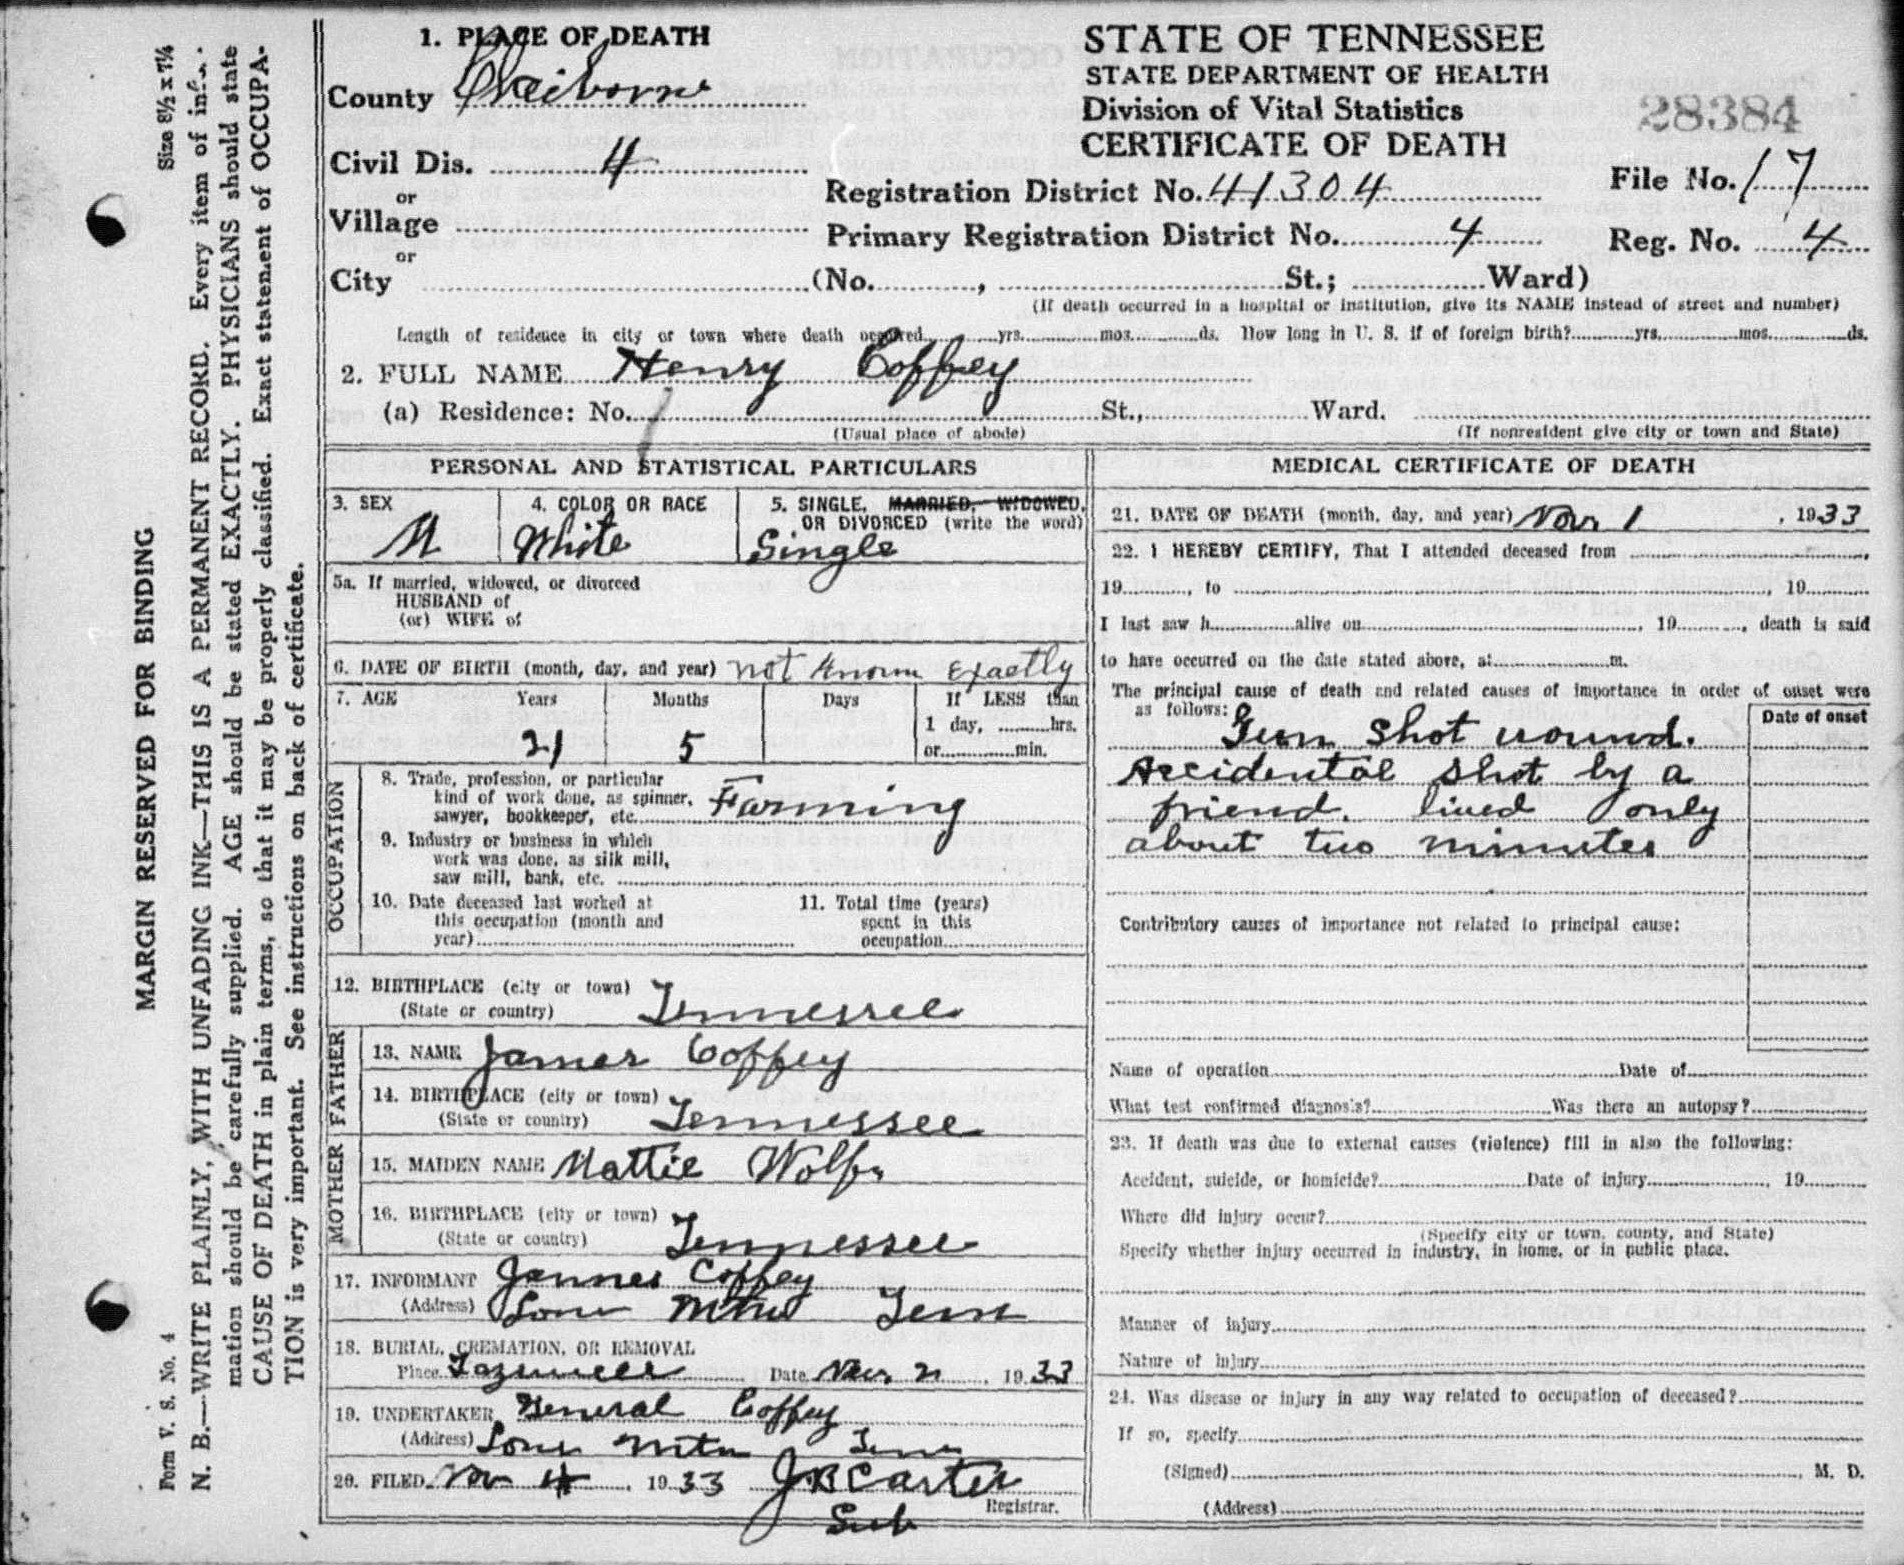 MARGIN RESERVED FOR BINDING
Size 8½ x 7¼
N. B.—WRITE PLAINLY, WITH UNFADING INK—THIS IS A PERMANENT RECORD. Every item of infor-
mation should be carefully supplied. AGE should be stated EXACTLY. PHYSICIANS should state
CAUSE OF DEATH in plain terms, so that it may be properly classified. Exact statement of OCCUPA-
TION is very important. See instructions on back of certificate.
Form V. S. No. 4
1. PLACE OF DEATH
County Claiborne
Civil Dis. 4
or
Village
or
City (No. , St.; Ward)
STATE OF TENNESSEE
STATE DEPARTMENT OF HEALTH
Division of Vital Statistics
CERTIFICATE OF DEATH
28384
Registration District No. 41304 File No. 17
Primary Registration District No. 4 Reg. No. 4
(If death occurred in a hospital or institution, give its NAME instead of street and number)
Length of residence in city or town where death occurred yrs. mos. ds. How long in U. S. if of foreign birth? yrs. mos. ds.
2. FULL NAME Henry Coffey
(a) Residence: No. St., Ward.
(Usual place of abode) (If nonresident give city or town and State)
PERSONAL AND STATISTICAL PARTICULARS
3. SEX
M
4. COLOR OR RACE
White
5. SINGLE, MARRIED, WIDOWED,
OR DIVORCED (write the word)
Single
5a. If married, widowed, or divorced
HUSBAND of
(or) WIFE of
6. DATE OF BIRTH (month, day, and year) not known Exactly
7. AGE Years Months Days If LESS than
1 day, hrs.
or min.
21 5
OCCUPATION
8. Trade, profession, or particular
kind of work done, as spinner,
sawyer, bookkeeper, etc. Farming
9. Industry or business in which
work was done, as silk mill,
saw mill, bank, etc.
10. Date deceased last worked at
this occupation (month and
year)
11. Total time (years)
spent in this
occupation
12. BIRTHPLACE (city or town)
(State or country) Tennessee
FATHER
13. NAME James Coffey
14. BIRTHPLACE (city or town)
(State or country) Tennessee
MOTHER
15. MAIDEN NAME Mattie Wolfe
16. BIRTHPLACE (city or town)
(State or country) Tennessee
17. INFORMANT James Coffey
(Address) Lone Mtn Tenn
18. BURIAL, CREMATION, OR REMOVAL
Place Tazewell Date Nov 2 , 1933
19. UNDERTAKER General Coffey
(Address) Lone Mtn Tenn
20. FILED Nov 4 , 1933 J B Carter
Registrar.
Sub
MEDICAL CERTIFICATE OF DEATH
21. DATE OF DEATH (month, day, and year) Nov 1 , 1933
22. I HEREBY CERTIFY, That I attended deceased from ,
19 , to , 19
I last saw h alive on , 19 , death is said
to have occurred on the date stated above, at m.
The principal cause of death and related causes of importance in order of onset were
as follows:
Date of onset
Gun shot wound.
Accidental shot by a
friend. lived only
about two minutes
Contributory causes of importance not related to principal cause:
Name of operation Date of
What test confirmed diagnosis? Was there an autopsy?
23. If death was due to external causes (violence) fill in also the following:
Accident, suicide, or homicide? Date of injury , 19
Where did injury occur?
(Specify city or town, county, and State)
Specify whether injury occurred in industry, in home, or in public place.
Manner of injury
Nature of injury
24. Was disease or injury in any way related to occupation of deceased?
If so, specify
(Signed) , M. D.
(Address)